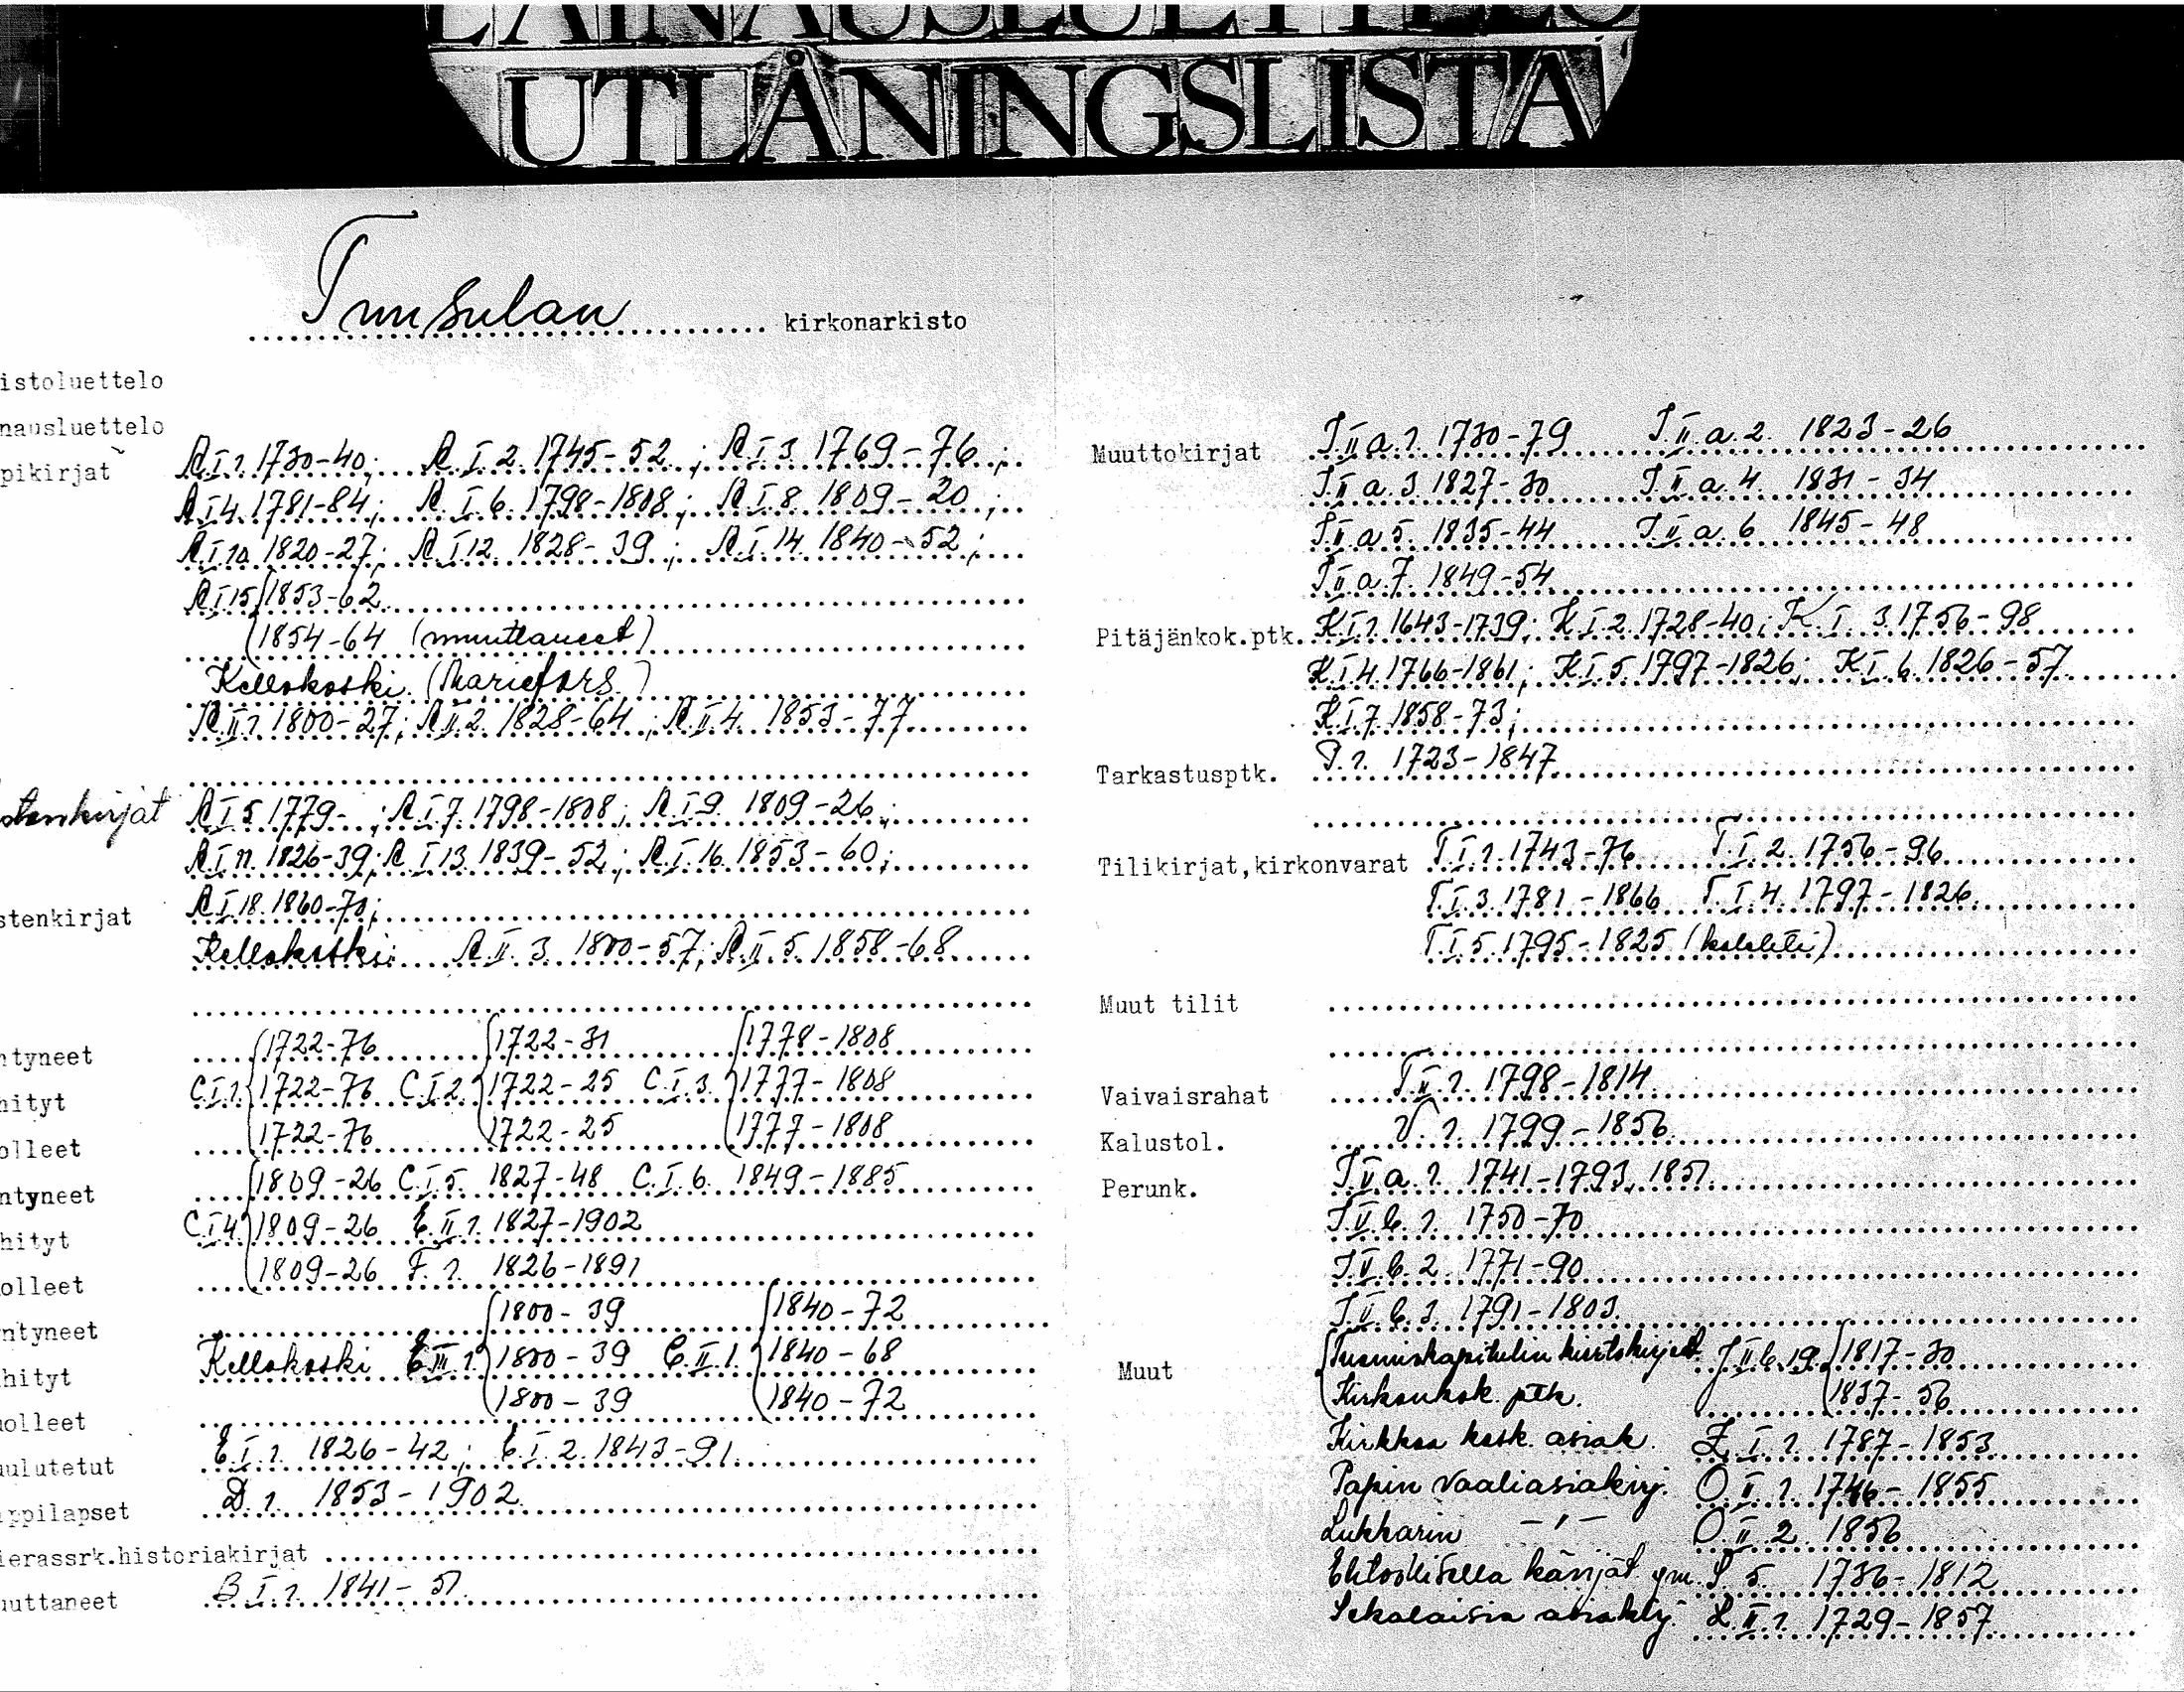 LAINAUSLUETTELO
UTLÅNINGSLISTA
Tuusulan kirkonarkisto
istoluettelo
nausluettelo
pikirjat R.I.1. 1730-40; R.I.2. 1745-52; R.I.3. 1769-76;
R.I.4. 1781-84; R.I.6. 1798-1808; R.I.8. 1809-20;
R.I.10. 1820-27; R.I.12. 1828-39; R.I.14. 1840-52;
R.I.15 1853-62
1854-64 (muuttaneet)
Kellokoski (Mariefors.)
R.II.1. 1800-27; R.II.2. 1828-64; R.II.4. 1853-77
stenkirjat R.I.5. 1779- ; R.I.7. 1798-1808; R.I.9. 1809-26;
R.I.11. 1826-39; R.I.13. 1839-52; R.I.16. 1853-60;
stenkirjat R.I.18. 1860-70;
Kellokoski: R.II.3. 1800-57; R.II.5. 1858-68
ntyneet 1722-76 1722-31 1778-1808
hityt C.I.1. 1722-76 C.I.2. 1722-25 C.I.3. 1777-1808
olleet 1722-76 1722-25 1777-1808
ntyneet 1809-26 C.I.5. 1827-48 C.I.6. 1849-1885
hityt C.I.4 1809-26 E.II.1. 1827-1902
olleet 1809-26 F.1. 1826-1891
ntyneet 1800-39 1840-72
hityt Kellokoski E.III.1. 1800-39 C.II.1. 1840-68
uolleet 1800-39 1840-72
uulutetut E.I.1. 1826-42; E.I.2. 1843-91
ppilapset D.1. 1853-1902
ierassrk.historiakirjat
uuttaneet B.I.1. 1841-51
Muuttokirjat I.II.a.1. 1730-79 I.II.a.2. 1823-26
I.II.a.3. 1827-30 I.II.a.4. 1831-34
I.II.a.5. 1835-44 I.II.a.6. 1845-48
I.II.a.7. 1849-54
Pitäjänkok.ptk. K.I.1. 1643-1739; K.I.2. 1728-40; K.I.3. 1756-98
K.I.4. 1766-1861; K.I.5. 1797-1826; K.I.6. 1826-57
K.I.7. 1858-73;
Tarkastusptk. P.1. 1723-1847
Tilikirjat,kirkonvarat T.I.1. 1743-76 T.I.2. 1756-96
T.I.3. 1781-1866 T.I.4. 1797-1826
T.I.5. 1795-1825
Muut tilit
Vaivaisrahat T.II.1. 1798-1814
Kalustol. V.1. 1799-1856
Perunk. I.V.a.1. 1741-1793, 1851
I.V.b.1. 1750-70
I.V.b.2. 1771-90
I.V.b.3. 1791-1803
Muut Tuomiokapitulin kiertokirjeet J.II.b.19. 1817-30
Kirkonkok. ptk. 1837-56
Kirkkoa kosk. asiak. Z.I.1. 1787-1853
Papin vaaliasiakirj. O.II.1. 1746-1855
Lukkarin -"- O.II.2. 1856
Ehtoollisella kävijät ym. S.5. 1736-1812
Sekalaisia asiakirj. Z.II.1. 1729-1857